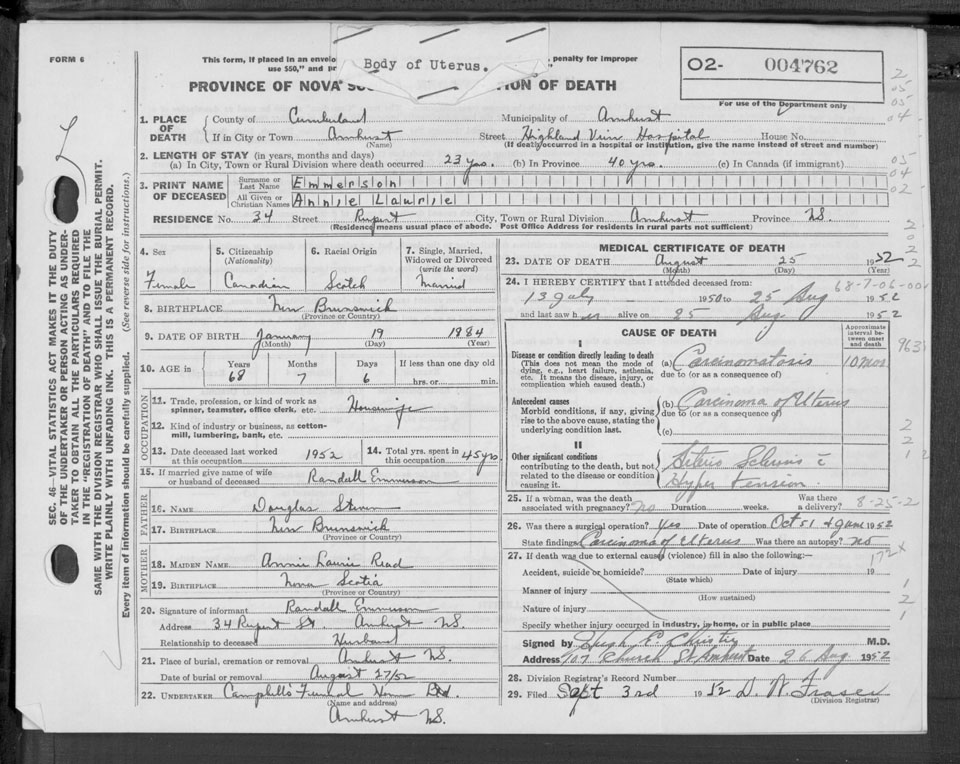 FORM 6
This form, if placed in an envelo
, penalty for improper
use $50," and pr
Body of Uterus.
PROVINCE OF NOVA SC
ION OF DEATH
O2- 004762
For use of the Department only
1. PLACE OF DEATH
County of Cumberland Municipality of Amherst
If in City or Town Amherst Street Highland View Hospital House No.
(Name) (If death occurred in a hospital or institution, give the name instead of street and number)
2. LENGTH OF STAY (in years, months and days)
(a) In City, Town or Rural Division where death occurred 23 yrs. (b) In Province 40 yrs. (c) In Canada (if immigrant)
3. PRINT NAME OF DECEASED
Surname or Last Name Emmerson
All Given or Christian Names Annie Laurie
RESIDENCE No. 34 Street Rupert City, Town or Rural Division Amherst Province N.S.
(Residence means usual place of abode. Post Office Address for residents in rural parts not sufficient)
SEC. 46—VITAL STATISTICS ACT MAKES IT THE DUTY
OF THE UNDERTAKER OR PERSON ACTING AS UNDER-
TAKER TO OBTAIN ALL THE PARTICULARS REQUIRED
IN THE "REGISTRATION OF DEATH" AND TO FILE THE
SAME WITH THE DIVISION REGISTRAR WHO SHALL ISSUE THE BURIAL PERMIT.
WRITE PLAINLY WITH UNFADING INK. THIS IS A PERMANENT RECORD.
Every item of information should be carefully supplied. (See reverse side for instructions.)
4. Sex
Female
5. Citizenship (Nationality)
Canadian
6. Racial Origin
Scotch
7. Single, Married, Widowed or Divorced (write the word)
Married
8. BIRTHPLACE New Brunswick
(Province or Country)
9. DATE OF BIRTH January 19 1884
(Month) (Day) (Year)
10. AGE in Years Months Days If less than one day
68 7 6 hrs. or min.
OCCUPATION
11. Trade, profession, or kind of work as spinner, teamster, office clerk, etc. Housewife
12. Kind of industry or business, as cotton-mill, lumbering, bank, etc.
13. Date deceased last worked at this occupation 1952
14. Total yrs. spent in this occupation 45 yrs.
15. If married give name of wife or husband of deceased Randall Emmerson
FATHER
16. NAME Douglas
17. BIRTHPLACE New Brunswick
(Province or Country)
MOTHER
18. MAIDEN NAME Annie Laurie Read
19. BIRTHPLACE Nova Scotia
(Province or Country)
20. Signature of informant Randall Emmerson
Address 34 Rupert St. Amherst N.S.
Relationship to deceased Husband
21. Place of burial, cremation or removal Amherst N.S.
Date of burial or removal August 27/52
22. UNDERTAKER Campbell's Funeral Home
(Name and address)
Amherst N.S.
MEDICAL CERTIFICATE OF DEATH
23. DATE OF DEATH August 25 1952
(Month) (Day) (Year)
24. I HEREBY CERTIFY that I attended deceased from:
68-7-06-00
13 July 1950 to 25 Aug 1952
and last saw her alive on 25 Aug 1952
CAUSE OF DEATH
Approximate interval between onset and death
I
Disease or condition directly leading to death
(This does not mean the mode of dying, e.g., heart failure, asthenia, etc. It means the disease, injury, or complication which caused death.)
(a) Carcinomatosis 10 mos
due to (or as a consequence of)
963
Antecedent causes
Morbid conditions, if any, giving rise to the above cause, stating the underlying condition last.
(b) Carcinoma of Uterus
due to (or as a consequence of)
(c)
II
Other significant conditions
contributing to the death, but not related to the disease or condition causing it.
Arterio Sclerosis c̄
Hyper Tension
25. If a woman, was the death associated with pregnancy? no Duration weeks. Was there a delivery?
8-25-2
26. Was there a surgical operation? Yes Date of operation Oct 51 & June 1952
State findings Carcinoma of Uterus Was there an autopsy? no
172x
27. If death was due to external causes (violence) fill in also the following:—
Accident, suicide or homicide? Date of injury 19
(State which)
Manner of injury
(How sustained)
Nature of injury
Specify whether injury occurred in industry, in home, or in public place
Signed by Hugh E. Christie M.D.
Address 107 Church St Amherst Date 26 Aug 1952
28. Division Registrar's Record Number
29. Filed Sept 3rd 1952 D. W. Fraser
(Division Registrar)